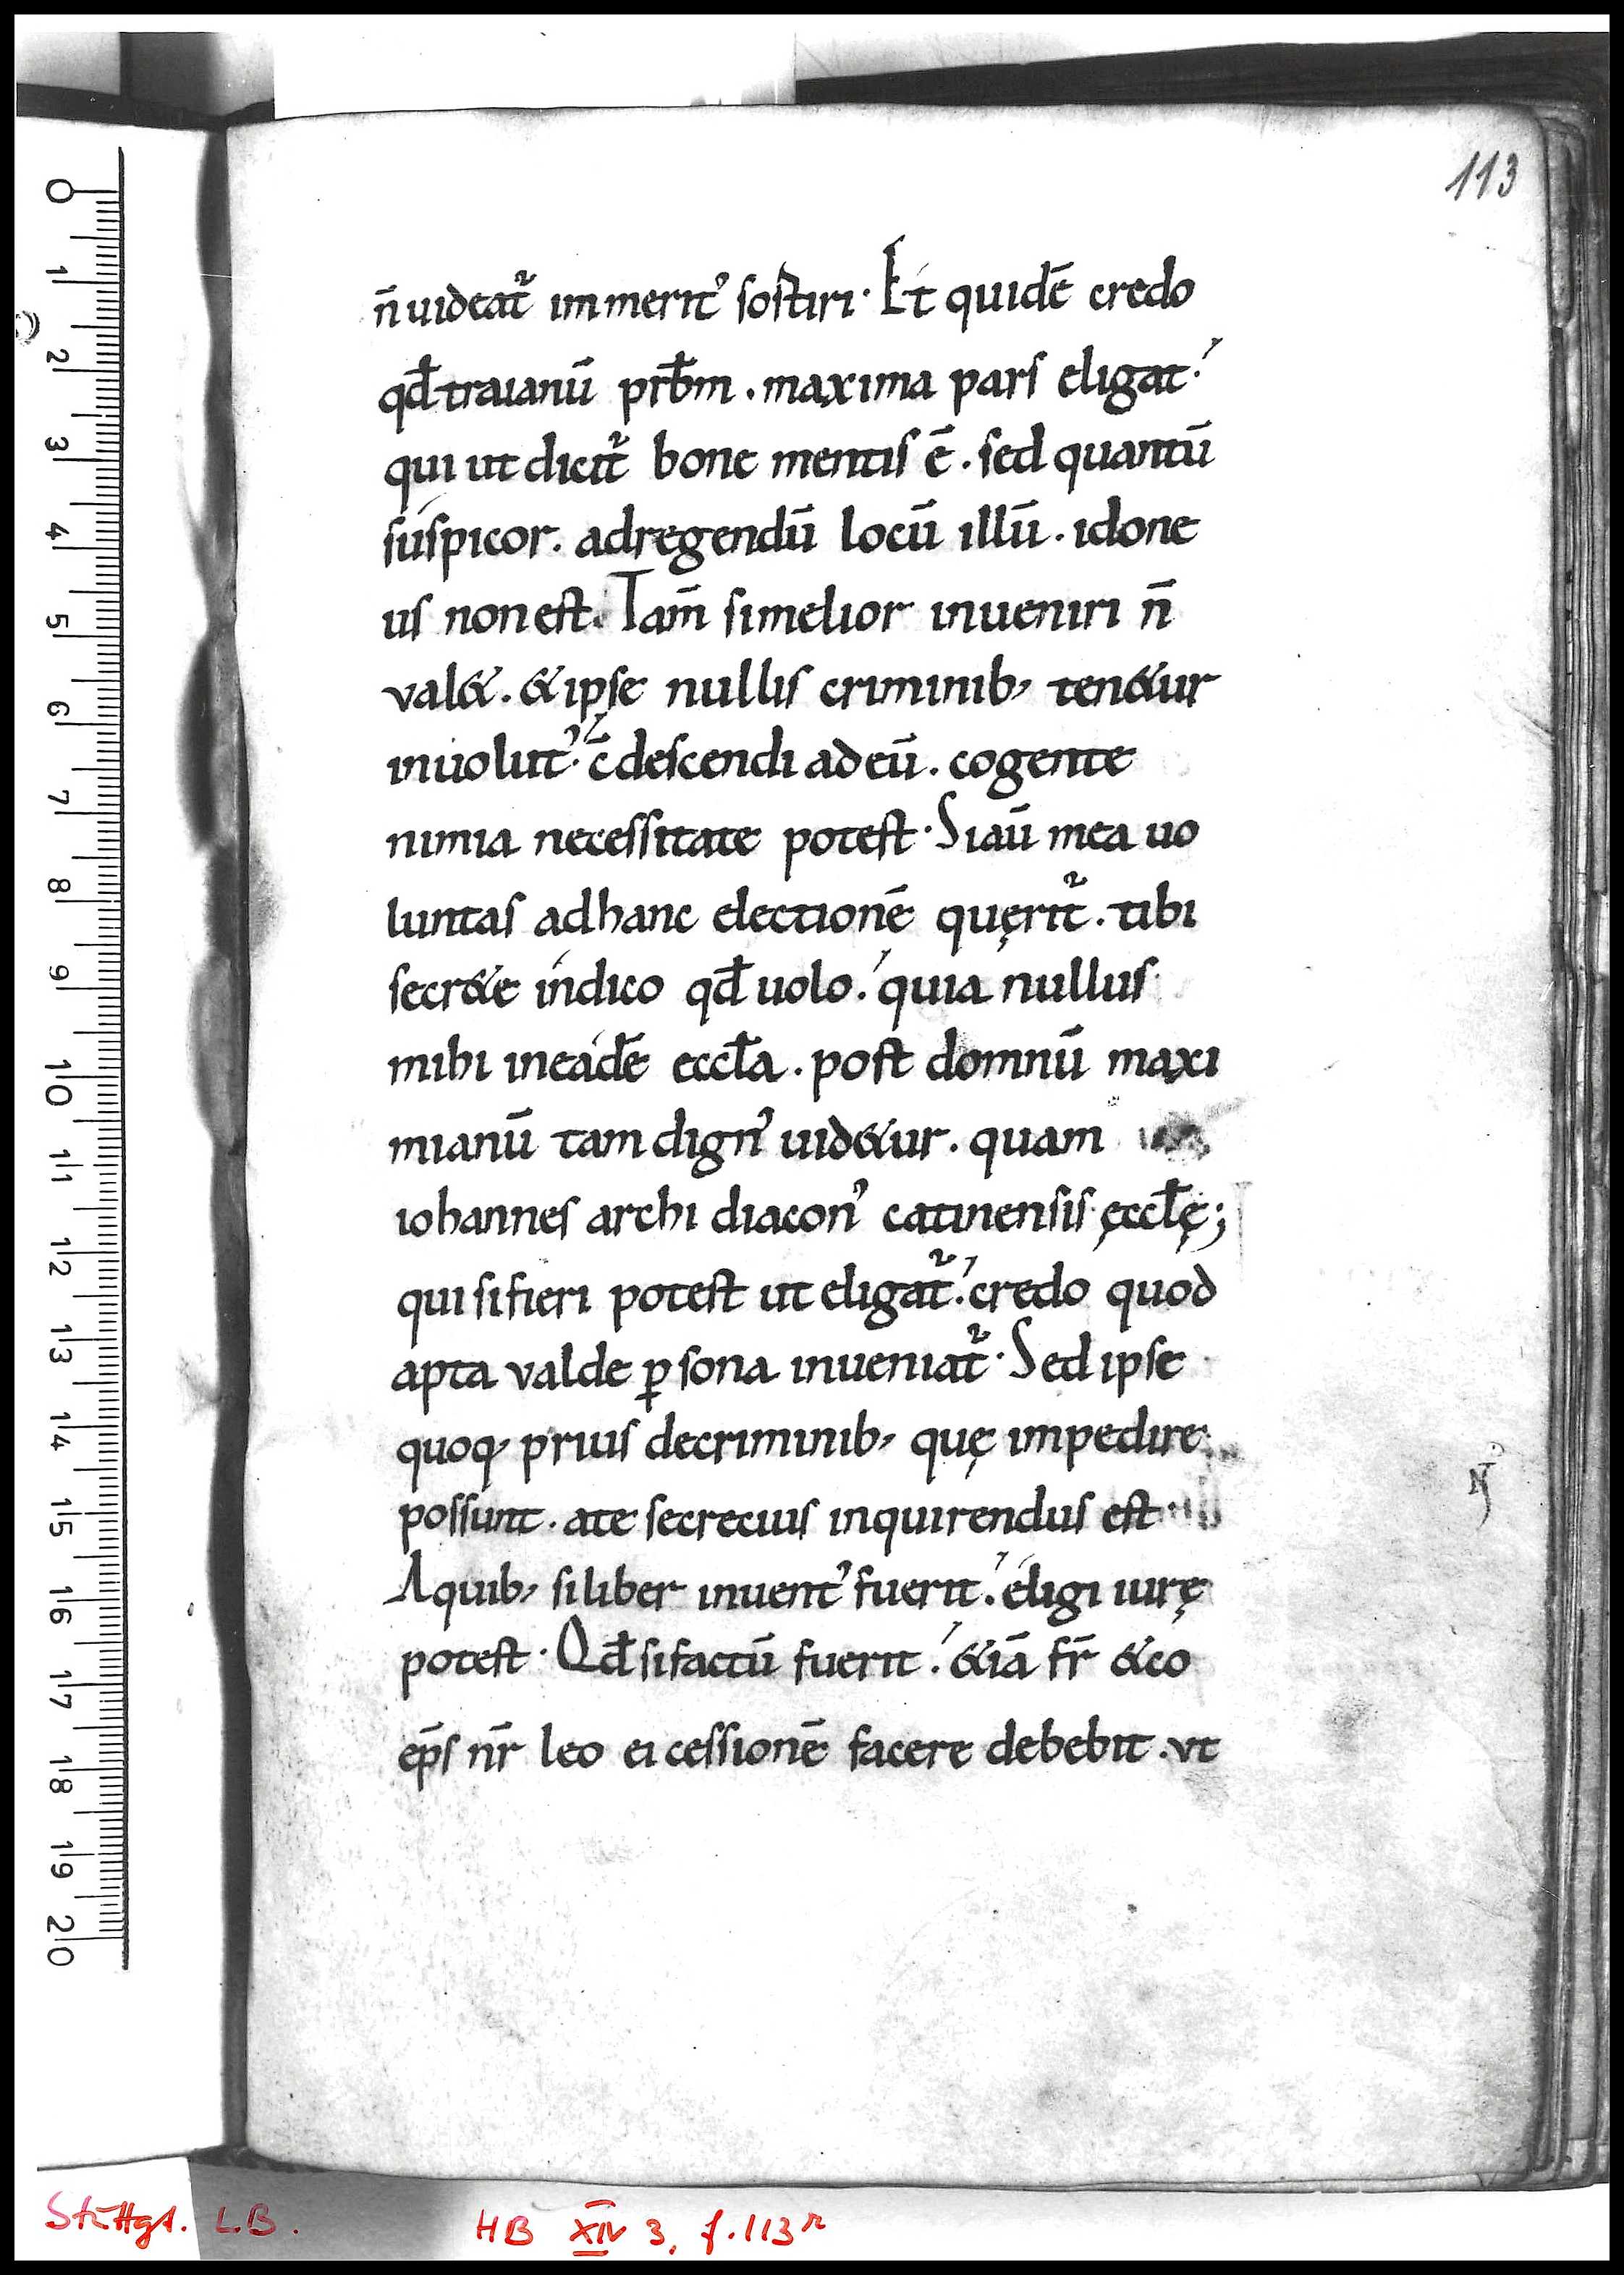 113
n̄ uideat᷑ im merit᾽ sostiri· Et quidē credo
qđ traianū prb̄m . maxima pars eligat·
qui ut dicit᷑ bone mentis ē . sed quantū
suspicor . adregendū locū illū . idone
us non est. Tam̄ simelior inueniri n̄
val& . & ipse nullis criminib, ten&ur
inuolut᾽· c̄descendi ad eū . cogente
nimia necessitate potest· Siaū mea uo
luntas adhanc electionē quęrit᷑ . tibi
secr&e indico qđ uolo . quia nullus
mihi ineadē eccl̄a . post domnū maxi
mianū tam dign᾽ uid&ur . quam
iohannes archi diacon᾽ catinensis ęccl̄ę ;
qui sifieri potest ut eligat᷑ . credo quod
apta valde ꝑsona inueniat᷑ · Sed ipse
quoq, prius decriminib, quę impedire
possunt . ate secrecius inquirendus est
Aquib, siliber inuent᾽ fuerit . eligi iurę
potest · Qđ sifactū fuerit . &iā fr̄ & co
ep̄s nr̄ leo ei cessionē facere debebit . vt
0
1
2
3
4
5
6
7
8
9
10
11
12
13
14
15
16
17
18
19
20
Stuttgt. L.B. HB XIV 3, f. 113r